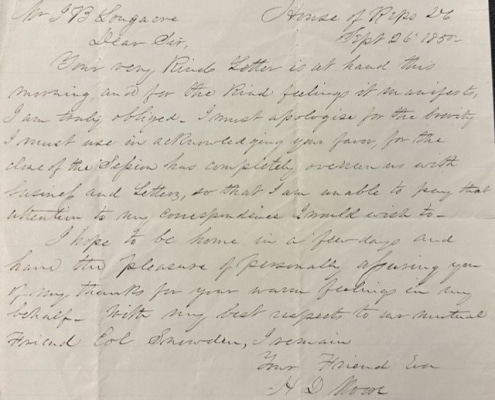 Mr J B Longacre House of Reps US
Dear Sir, Sept 26 1850-
Your very Kind Letter is at hand this
morning, and for the Kind feelings it manifests,
I am truly obliged - I must apologise for the brevity
I must use in acknowledging your favor, for the
close of the Session has completely overrun us with
business and Letters, so that I am unable to pay that
attention to my correspondence I would wish to -
I hope to be home in a few days and
have the pleasure of personally assuring you
of my thanks for your warm feelings in my
behalf - With my best respects to our mutual
Friend Col Snowden, I remain
Your Friend Ever
H D Moore